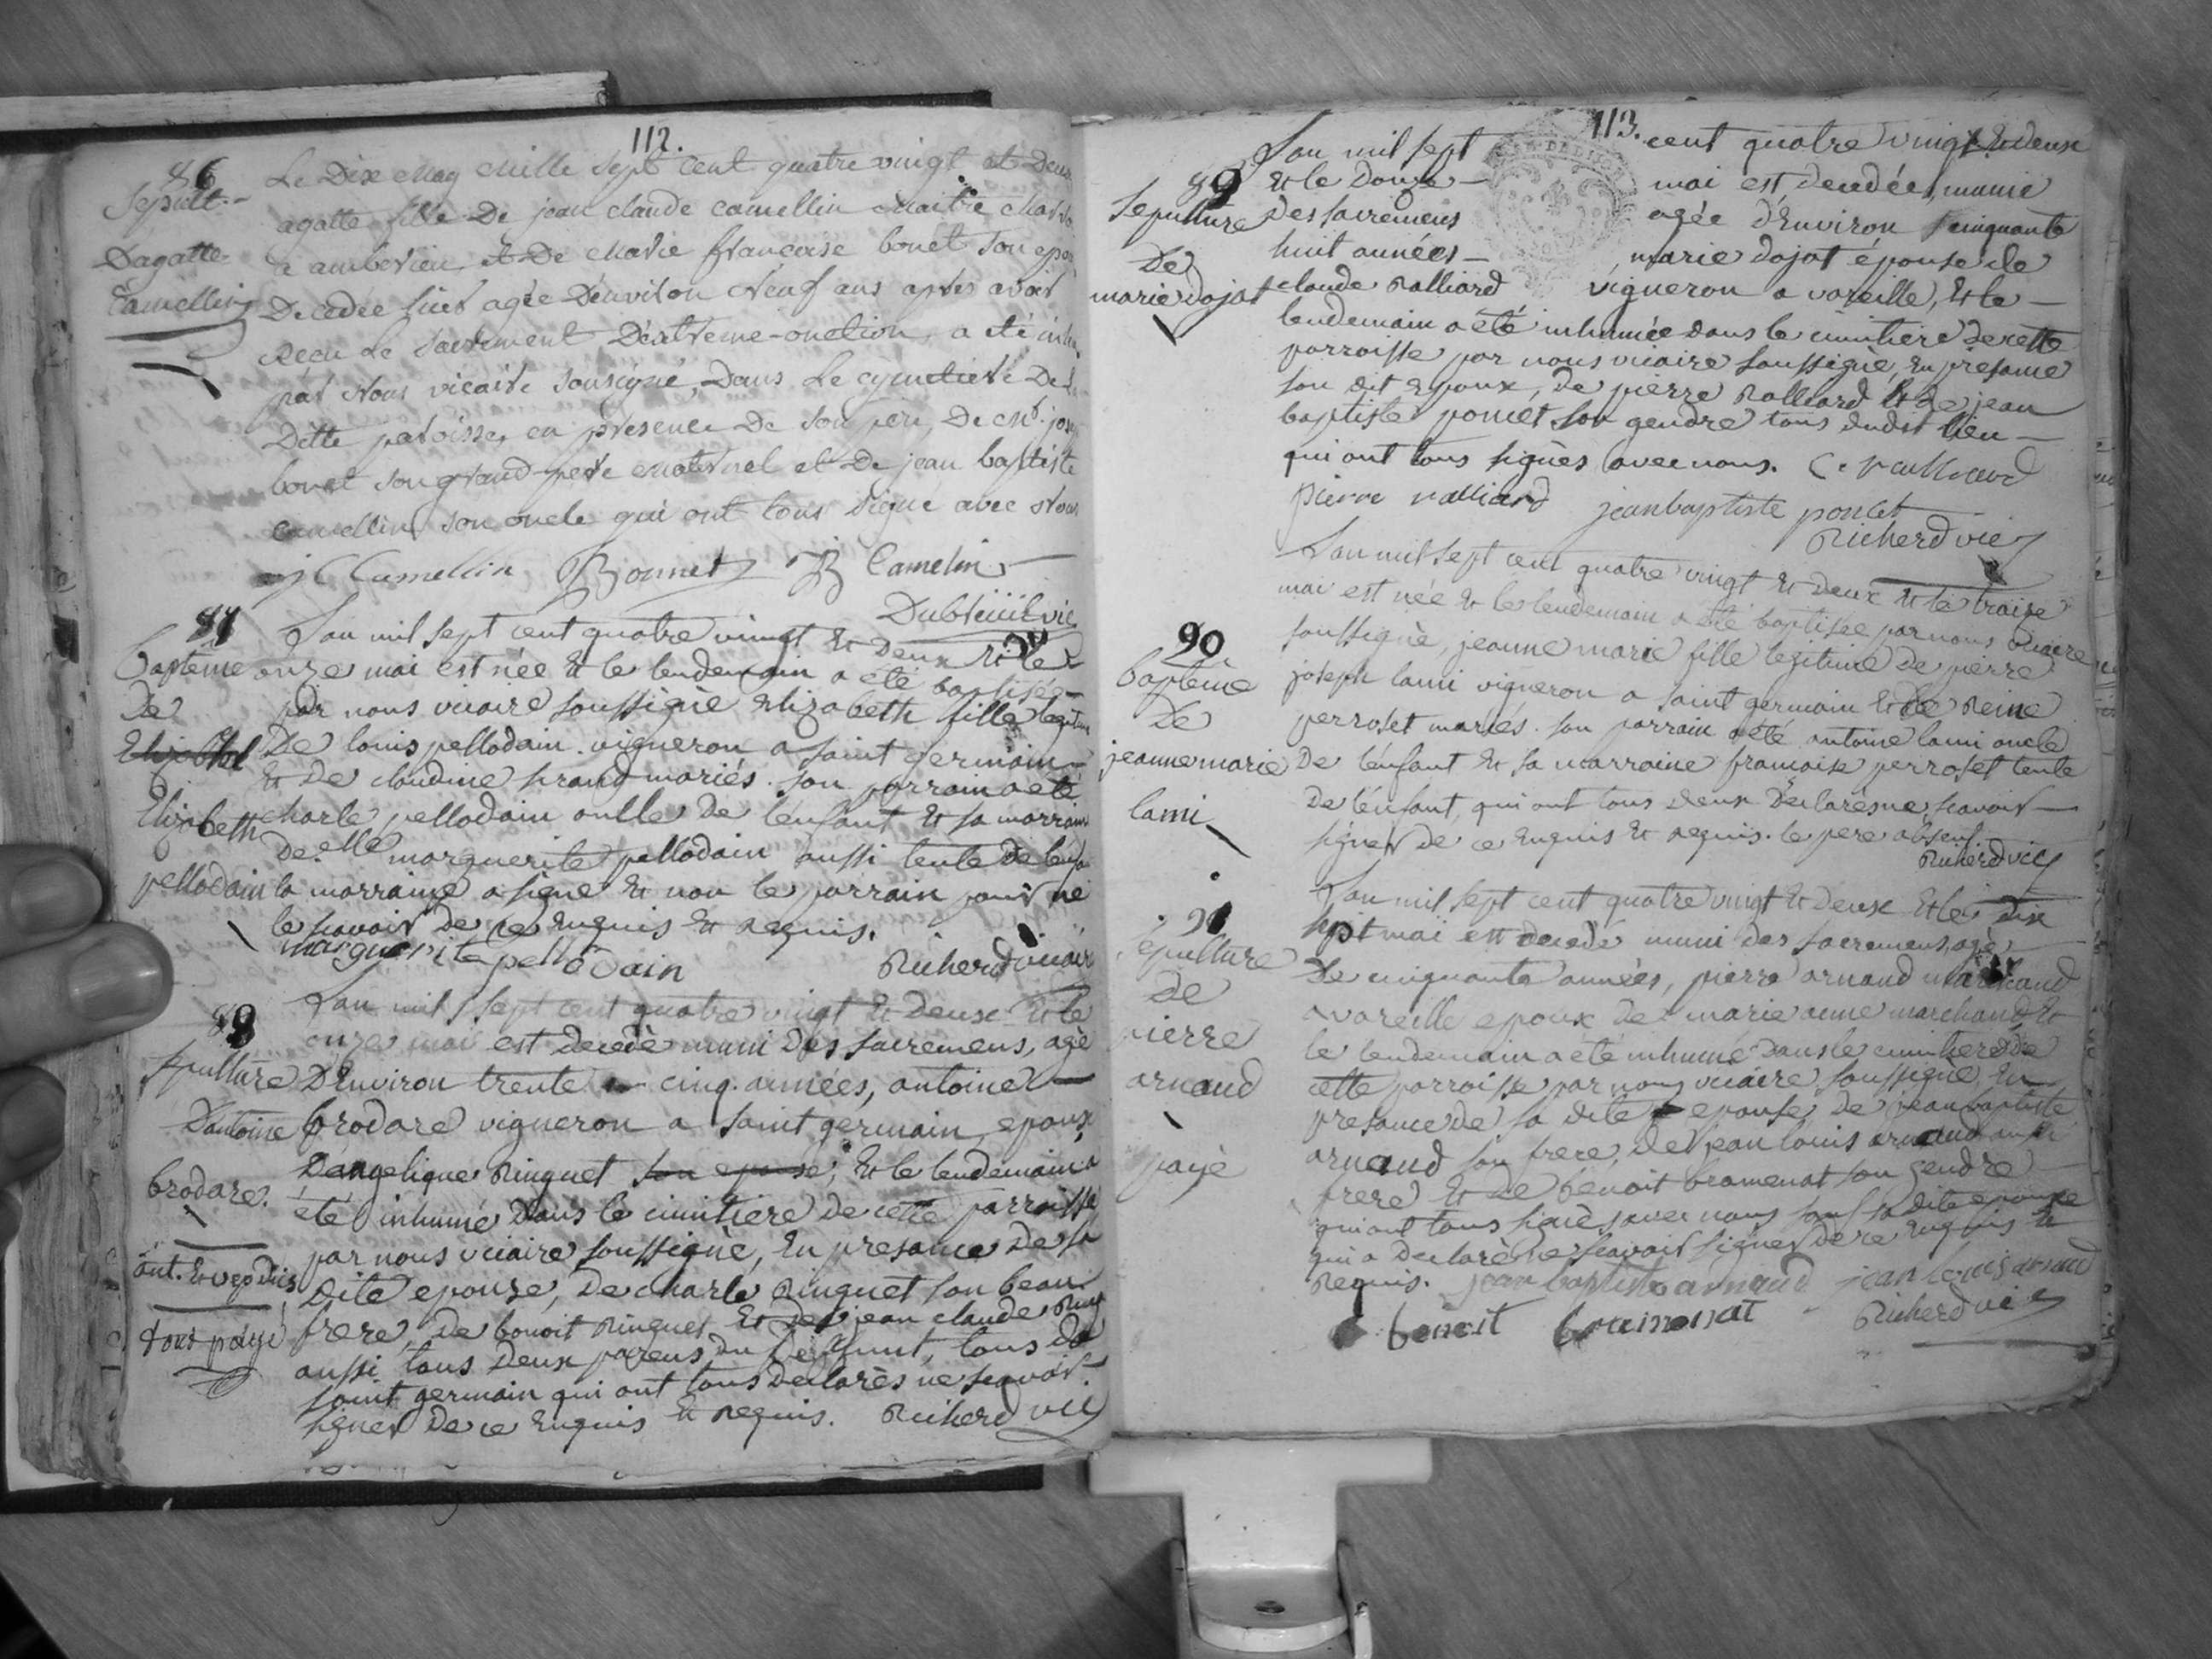 112.
86
Sepult.
Dagatte
Camellin
Le Dix May Mille Sept Cent quatre vingt et Deux
agatte fille De jean claude camellin Maitre
a amberieu, et De Marie françoise bonet son
Decedée hier agée Denviron Neuf ans apres avoir
reçu Le Sacrement Dextreme-onction, a été
par Nous vicaire Sousigné, Dans Le cymetiere De
Ditte paroisse, en presence De Son pere, De
bonet son grand-pere Maternel et De jean baptiste
Camellin son oncle qui ont tous Signé avec Nous
j C Camellin Bonnet JB Camelin
vic
87
baptême
De
Elizabeth
pellodain
L'an mil sept cent quatre vingt Et Deux Et le
onze mai est née Et le lendemain a été baptisée
par nous vicaire soussigné Elizabeth fille legitime
De louis pellodain vigneron a saint germain
Et De claudine mariés. son parrain a été
charle pellodain onlle De l'enfant Et sa marraine
De.elle marguerite pellodain aussi tente De
la marraine a signé Et non le parrain pour ne
le scavoir de ce Enquis Et requis.
marguerite pellodain Richerd vicaire
88
sepulture
Dantoine
brodare.
ant. Et vep dus
tout payé
L'an mil sept cent quatre vingt Et Deux Et le
onze mai est decedé muni Des sacremens, agé
D'Environ trente cinq années, antoine
brodare vigneron a saint germain, epoux
D'angelique Ringuet son epouse, Et le lendemain a
été inhumé Dans le cimitiere de cette parroisse
par nous vicaire soussigné, En presance De sa
Dite epouse, De charle Ringuet son beau
frere, De benoit Ringuet Et De jean claude
aussi tous Deux parens du Deffunt, tous De
saint germain qui ont tous Declarés ne scavoir
signer De ce Enquis Et requis. Richerd vic
113.
89
Sepulture
De
marie Dojat
L'an mil sept cent quatre vingt Et deux
Et le Douze mai est decedée, munie
Des sacremens agée d'Environ cinquante
huit années marie dojat épouse de
claude Ralliard vigneron a vareille, Et le
lendemain a été inhumée dans le cimitiere de cette
parroisse par nous vicaire soussigné, En présance
son dit Epoux, De pierre Ralliard Et De jean
baptiste poncet son gendre tous dudit lieu
qui ont tous signés avec nous.
pierre ralliard jean baptiste poncet
Richerd vic
90
baptême
De
jeanne marie
lami
L'an mil sept cent quatre vingt Et Deux Et le traize
mai est née Et le lendemain a été baptisée par nous vicaire
soussigné, jeanne marie fille legitime De pierre
joseph lami vigneron a saint germain Et de Reine
perroset mariés. son parrain a été antoine lami oncle
De l'enfant Et sa marraine françoise perroset tente
De l'enfant, qui ont tous deux Declarés ne scavoir
signer de ce Enquis Et requis. le pere absent
Richerd vic
91
sepulture
De
pierre
arnaud
payé
L'an mil sept cent quatre vingt Et Deux Et le dix
sept mai est decedé muni des sacremens, agé
De cinquante années, pierre arnaud marchand
a vareille epoux De marie anne marchand, Et
le lendemain a été inhumé Dans le cimitiere De
cette parroisse par nous vicaire soussigné, En
presance De sa dite epouse, De jean baptiste
arnaud son frere, De jean louis arnaud aussi
frere Et De benoit bramenat son gendre
qui ont tous signés avec nous sauf sa dite epouse
qui a declaré ne scavoir signer De ce Enquis Et
Requis. jean baptiste arnaud jean louis arnaud
benoit bramenat Richerd vic